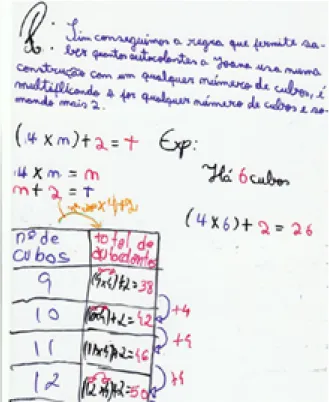 R: Sim conseguimos a regra que permite sa-
ber quantos autocolantes a Joana usa numa
construção com um qualquer número de cubos, é
multiplicando 4 por qualquer número de cubos e so-
mando mais 2.
(4 x n) + 2 = t Exp:
4 x n = m
m + 2 = t
Há 6 cubos
(4 x 6) + 2 = 26
nº de cubos
total de
9 (9x4)+2=38
+4
10 (10x4)+2=42
+4
11 (11x4)+2=46
+4
12 (12x4)+2=50